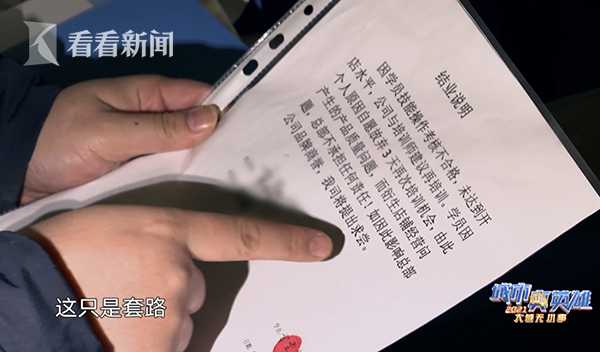 看看新闻
结业说明
因学员技能操作考核不合格，未达到开
店水平，公司与培训师建议再培训，学员因
个人原因自愿放弃3天再次培训机会，由此
产生的产品质量问题，而衍生店铺经营问
题，总部不承担任何责任！如因此影响总部
公司品牌商誉，我司将提出求偿。
这只是套路
城市真英雄
2021
大城无小事